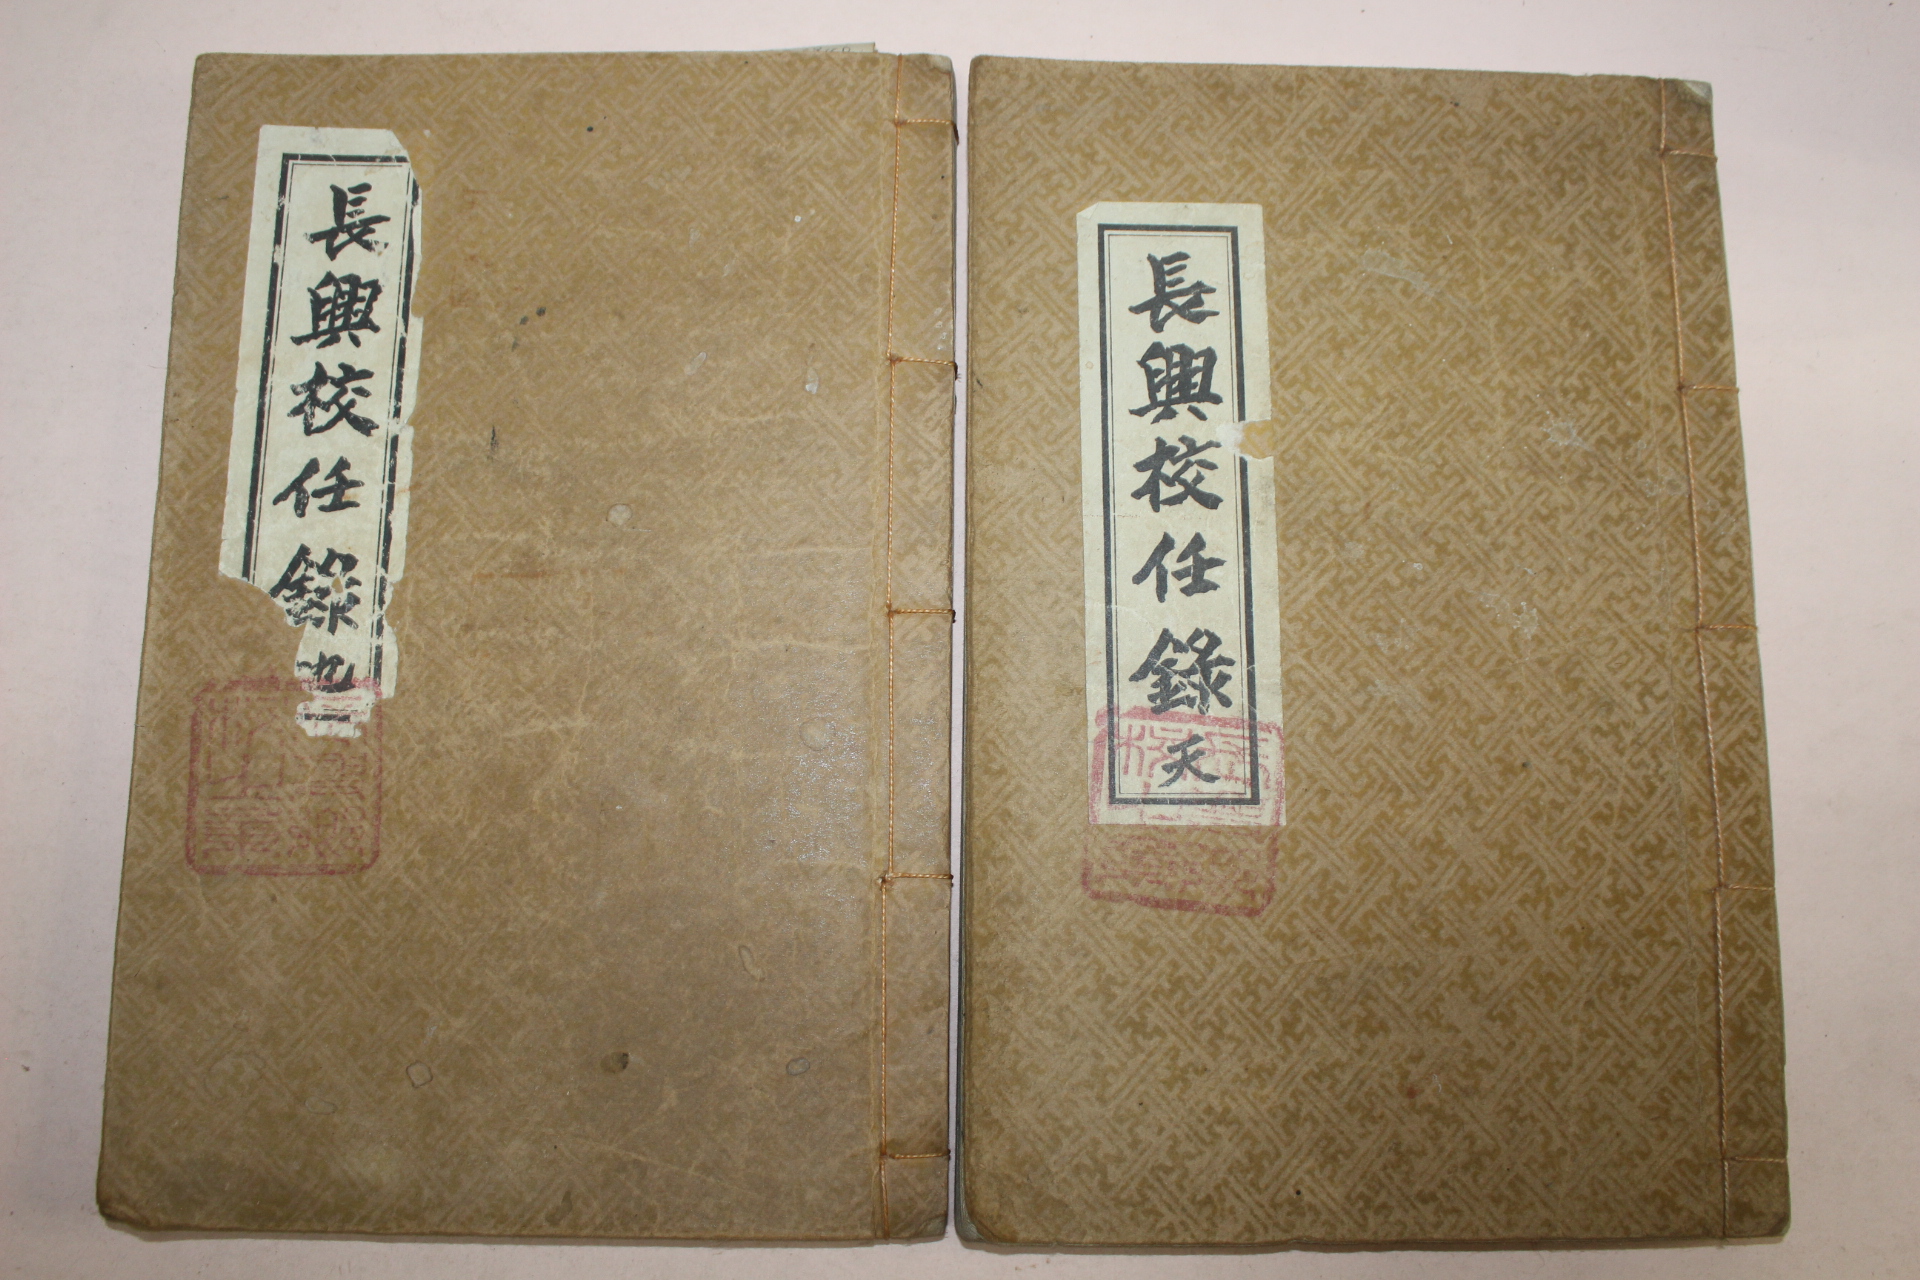 長興校任錄天
長興校任錄地